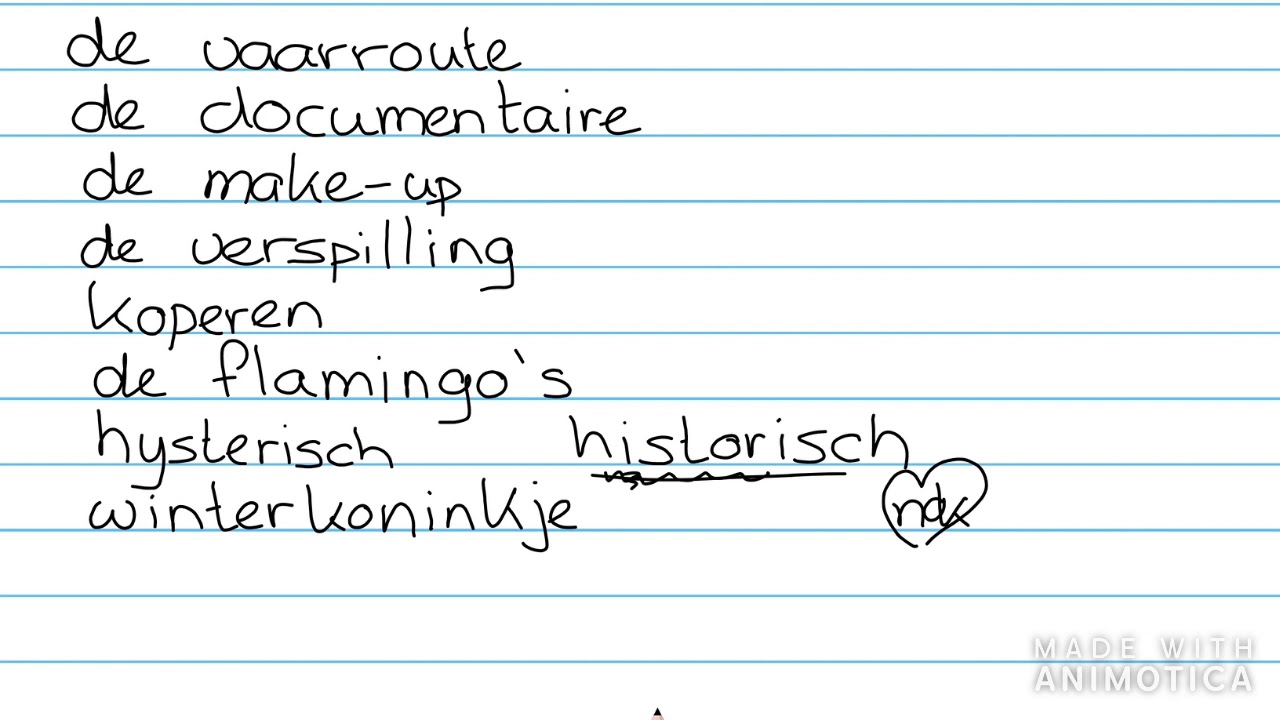 de vaarroute
de documentaire
de make-up
de verspilling
koperen
de flamingo's
hysterisch historisch
winterkoninkje ndk
MADE WITH
ANIMOTICA